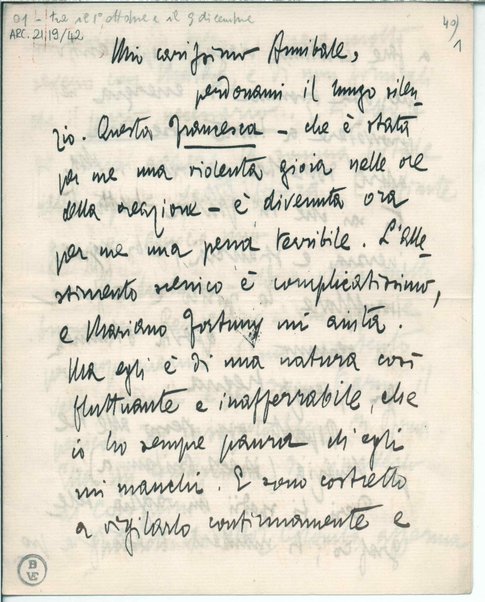 01 - tra il 1° ottobre e il 9 dicembre
ARC. 21/19/42
40/1
Mio carissimo Annibale,
perdonami il lungo silen-
zio. Questa Francesca - che è stata
per me una violenta gioia nelle ore
della creazione - è divenuta ora
per me una pena terribile. L'alle-
stimento scenico è complicatissimo,
e Mariano Fortuny mi aiuta.
Ma egli è di una natura così
fluttuante e inafferrabile, che
io ho sempre paura ch'egli
mi manchi. E sono costretto
a vigilarlo continuamente e
B
VE